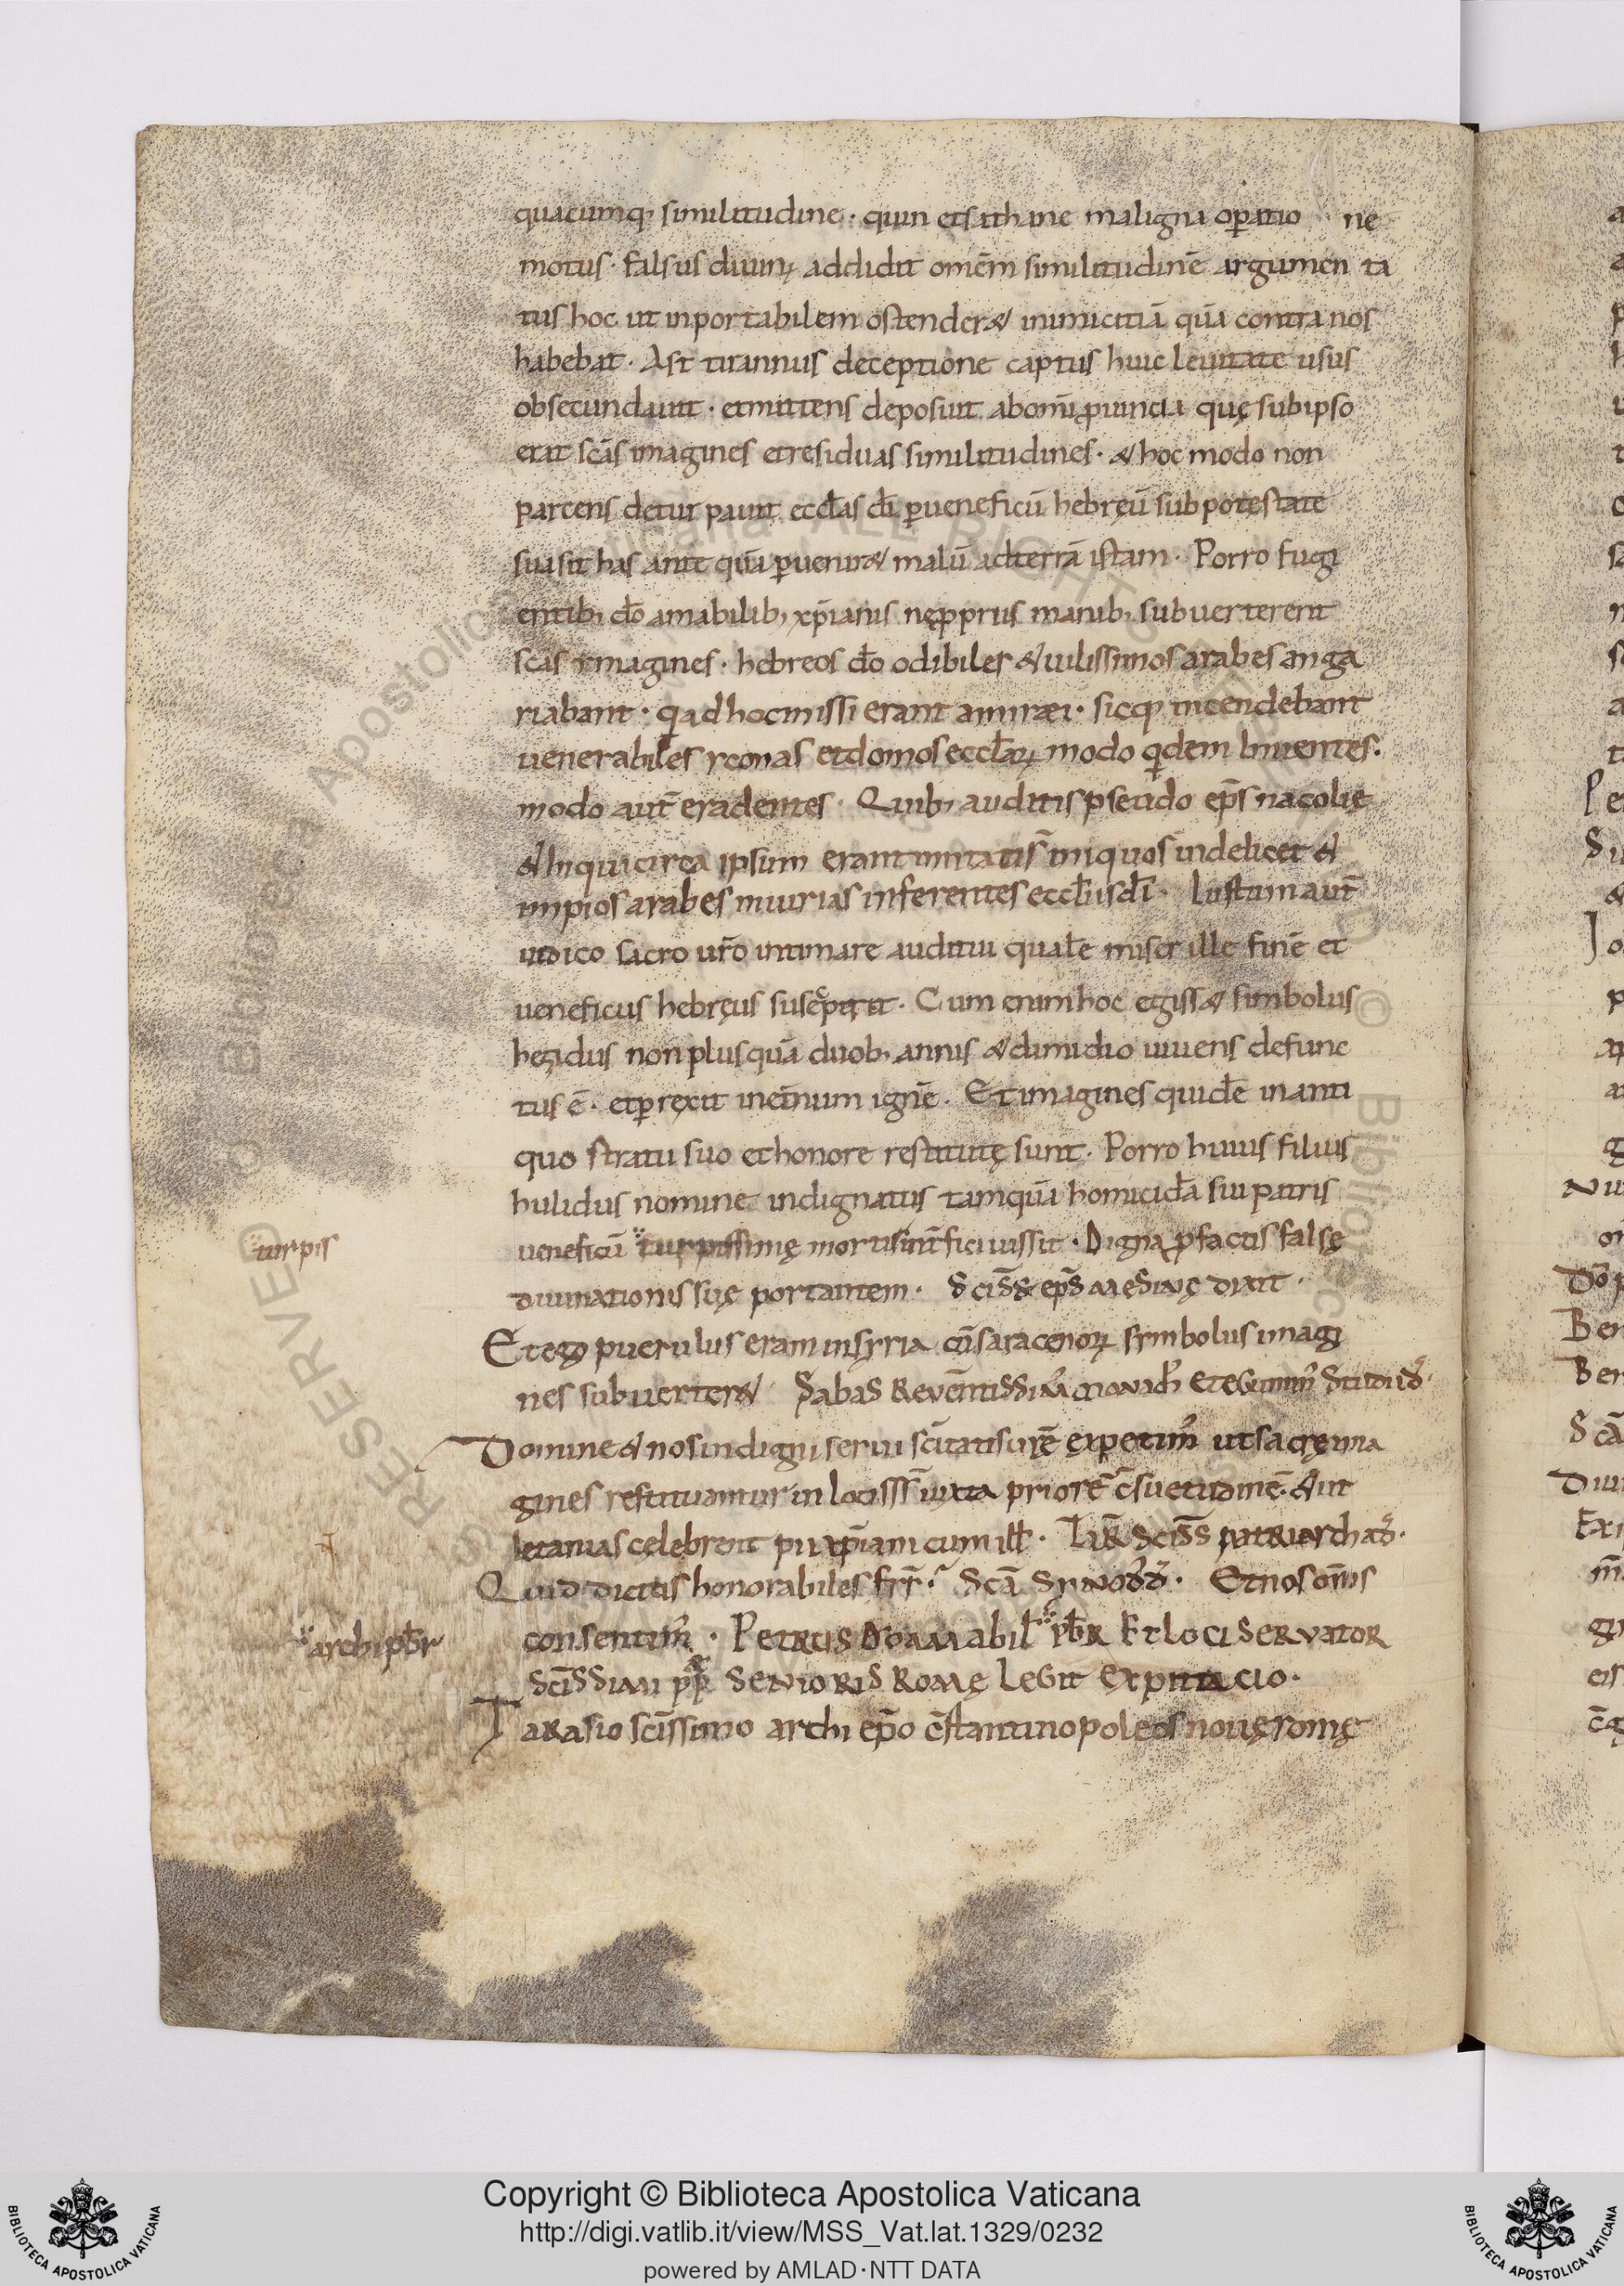 quacumq; similitudine · quin et sathane maligna opatio ne
motus · falsus diuinꝝ addidit omēm similitudinē argumen ta
tus hoc ut inportabilem ostender& inimicitiā quā contra nos
habebat · Ast tirannus deceptione captus huic leuitate usus
obsecundauit · et mittens deposuit ab omi ꝓuincia quę sub ipso
erat scās imagines et residuas similitudines · & hoc modo non
parcens deturpauit ecclas dī ꝑ ueneficū hebręū sub potestate
sua sit has ante quā ꝑuenir& malū ad terrā istam · Porro fugi
entib; dō amabilib; xp̄ianis ne ꝓpriis manib; subuerterent
scas ymagines · hebreos dō odibiles & uilissimos arabes anga
riabant · q ad hoc missi erant amiræi · sicq; incendebant
uenerabiles yconas et domos ecclaꝝ modo qdem linientes ·
modo aut̄ eradentes · Quib; auditis pseudo ep̄s nacolię
& hi qui circa ipsum erant imitati s̄ iniquos indelicet &
impios arabes iniurias inferentes ecclīis dī · Iustum aut̄
iudico sacro ur̄o intimare auditui qualē miser ille finē et
ueneficus hebręus susceperit · Cum enim hoc egiss& simbolus
hezidus non plus quā duob; annis & dimidio uiuens defunc
tus ē · et ꝑrexit in et̄num ignē. Et imagines quidē in anti
quo stratu suo et honore restitutę sunt · Porro huius filius
hulidus nomine indignatus tamquā homicidā sui patris
turpis
ueneficū turpissimę mortis int̄fici iussit · Digna ꝓ factis falsę
diuinationis suę portantem · Scis̄s ep̄s medinę dixit ·
Et ego puerulus eram in syria cū saracenoꝝ symbolus imagi
nes subuerter& Sabas reuēntissim' monach' et egumn' studii
Domine & nos indigni serui scitatis ur̄ę expetim' ut sacrę ima
gines restituantur in locis s̄s iuxta priorē c̄suetudinē · & ut
letanias celebrent pii xp̄iani cum ill' · Tar̄ scis̄s patriarcha d̄ ·
Quid dicitis honorabiles frr̄ · Scā synod' d̄ · Et nos om̄s
archi pb̄r
consentim' · Petrus dō amabil' pb̄r et loci seruator
scis̄simi pp̄ę senioris romę legit ex pitacio ·
Tarasio scis̄simo archi ep̄o c̄stantinopoleos nouę romę
Copyright © Biblioteca Apostolica Vaticana
http://digi.vatlib.it/view/MSS_Vat.lat.1329/0232
powered by AMLAD·NTT DATA
BIBLIOTECA APOSTOLICA VATICANA
BIBLIOTECA APOSTOLICA VATICANA